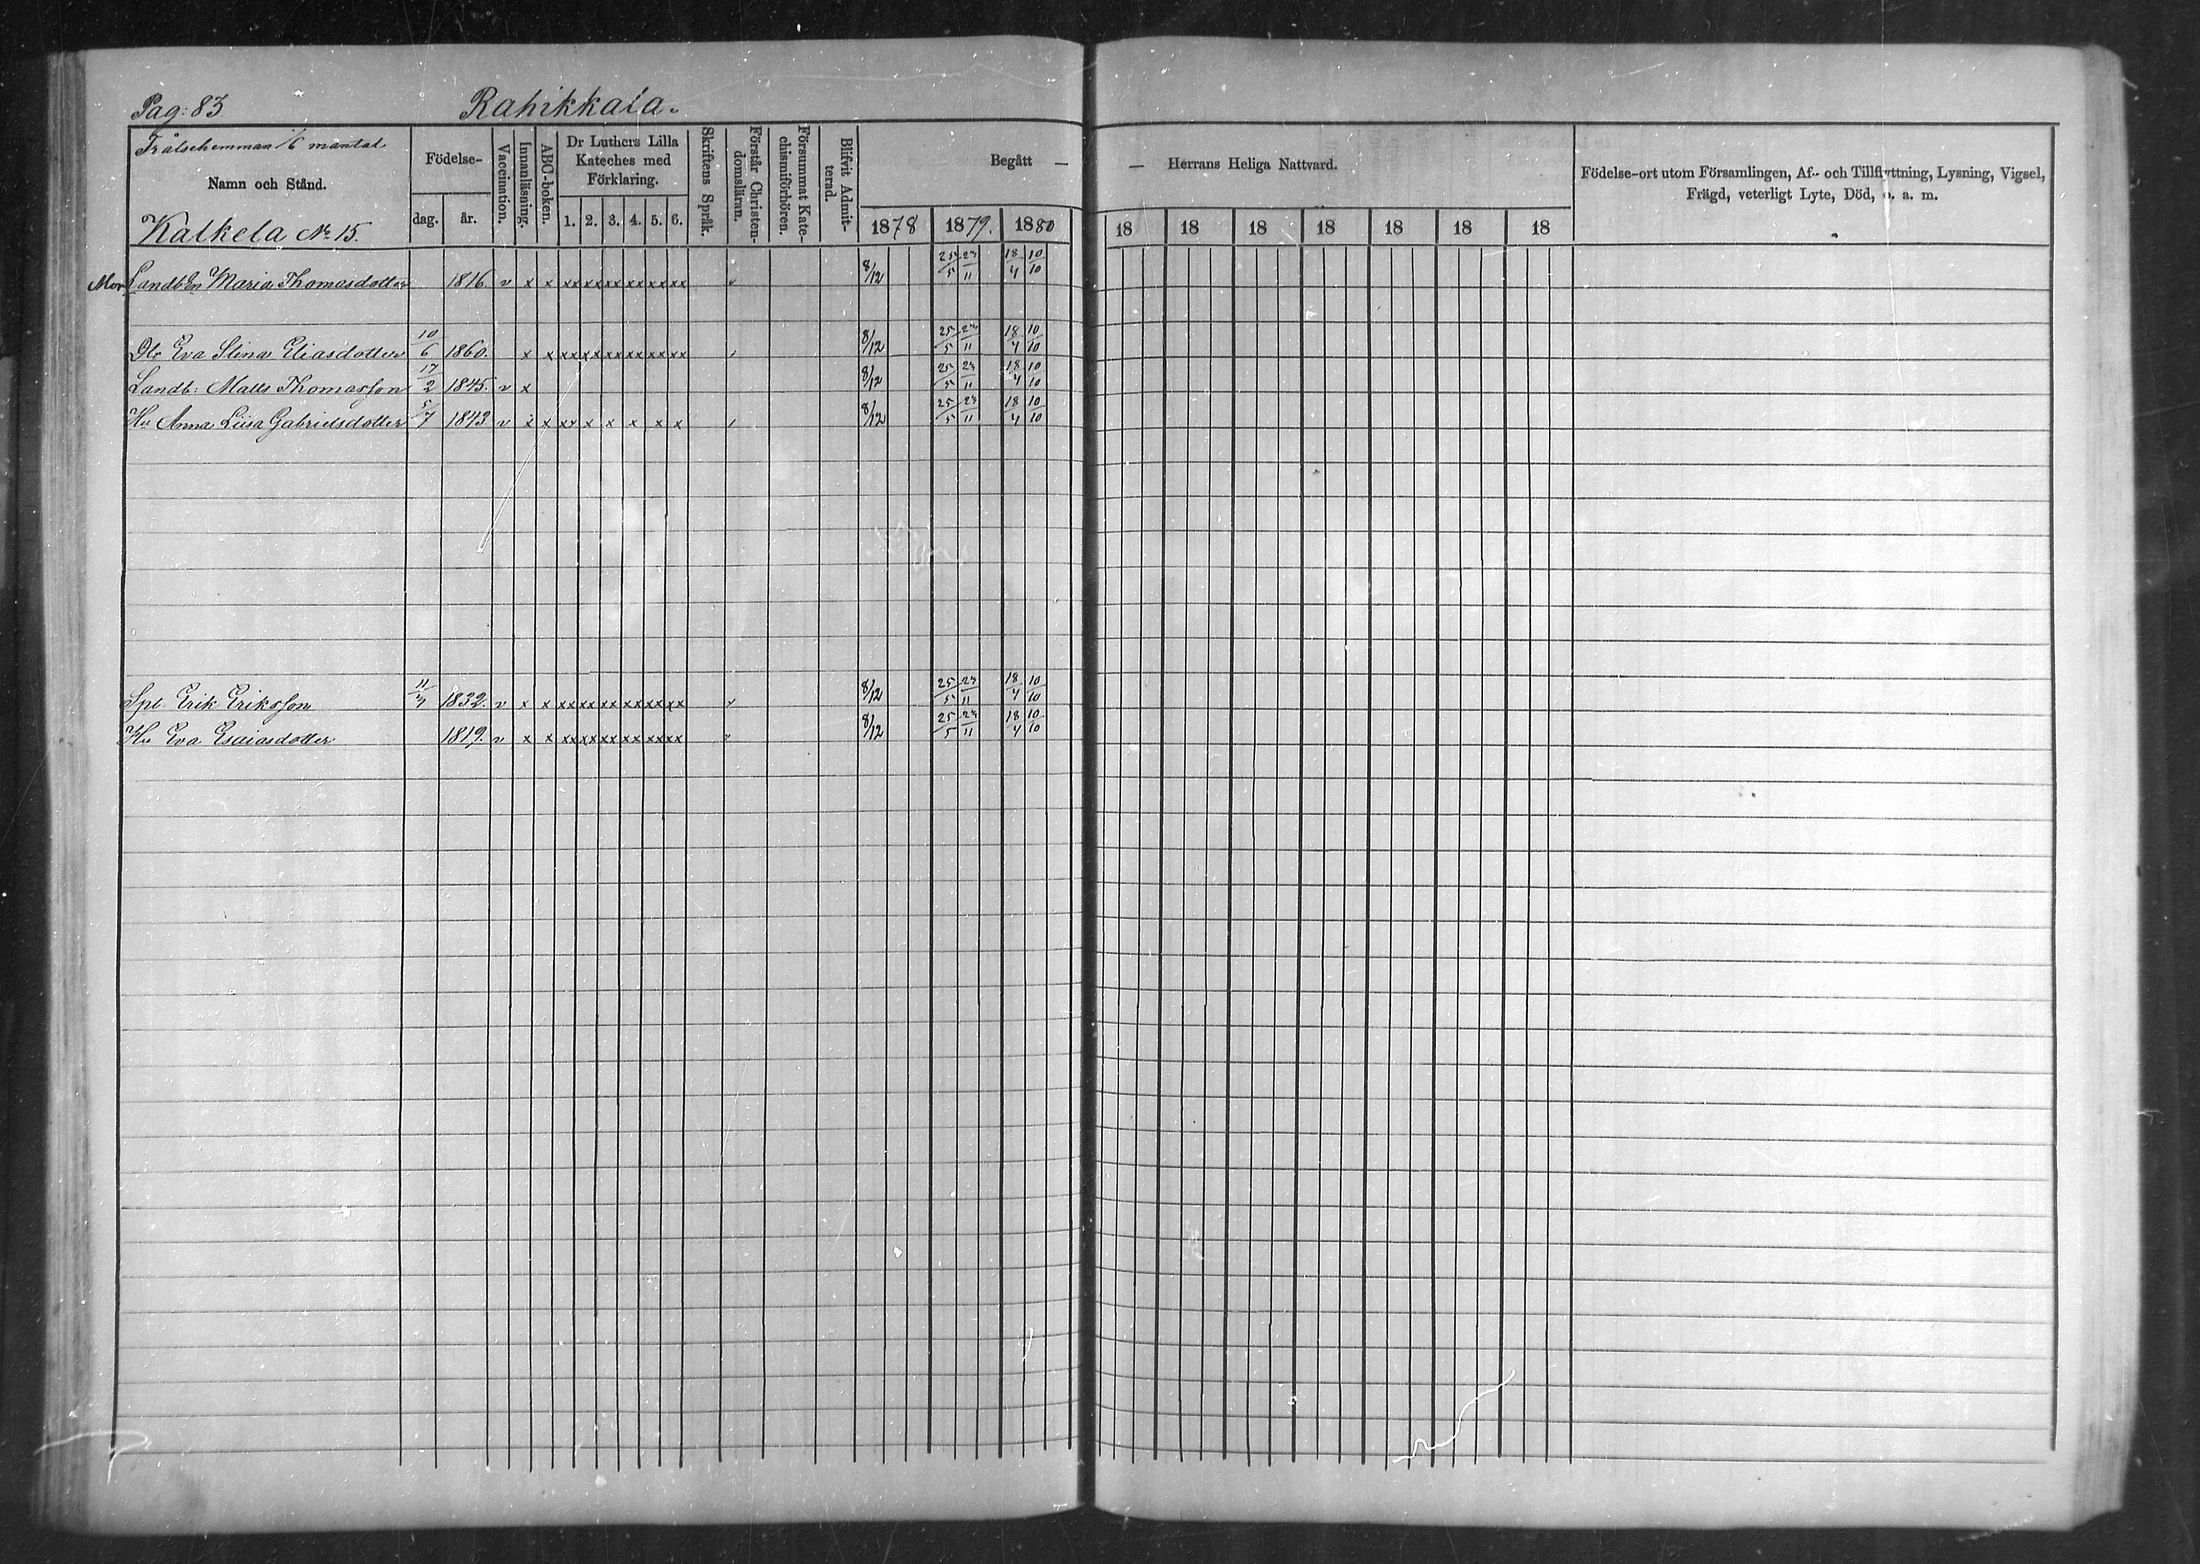 Pag: 83 Rahikkala.
Frälsehemman 1/6 mantal
Namn och Stånd.
Kalkela No 15.
Födelse-
dag. år.
Vaccination.
Innanläsning.
ABC-boken.
Dr Luthers Lilla
Kateches med
Förklaring.
1. 2. 3. 4. 5. 6.
Skriftens Språk.
Förstår Christen-
domsläran.
Försummat Kate-
chismiförhören.
Blifvit Admit-
terad.
Begått — — Herrans Heliga Nattvard.
1878 1879. 1880 18 18 18 18 18 18 18
Födelse-ort utom Församlingen, Af- och Tillflyttning, Lysning, Vigsel,
Frägd, veterligt Lyte, Död, o. a. m.
Mor Landb En Maria Thomasdotter 1816. v x x xx xx xx xx xx xx 8/12 25/5 23/11 18/4 10/10
Dtr Eva Stina Eliasdotter 10/6 1860. x x xx xx xx xx xx xx 8/12 25/5 23/11 18/4 10/10
Landb: Matts Thomasson 17/2 1845. v x 8/12 25/5 23/11 18/4 10/10
Hu Anna Lisa Gabrielsdotter 5/7 1843 v x x xx x x x x x 8/12 25/5 23/11 18/4 10/10
Spl. Erik Eriksson 1832. v x x xx xx xx xx xx xx 8/12 25/5 23/11 18/4 10/10
Hu Eva Esaiasdotter 1819. v x x xx xx xx xx xx xx 8/12 25/5 23/11 18/4 10/10